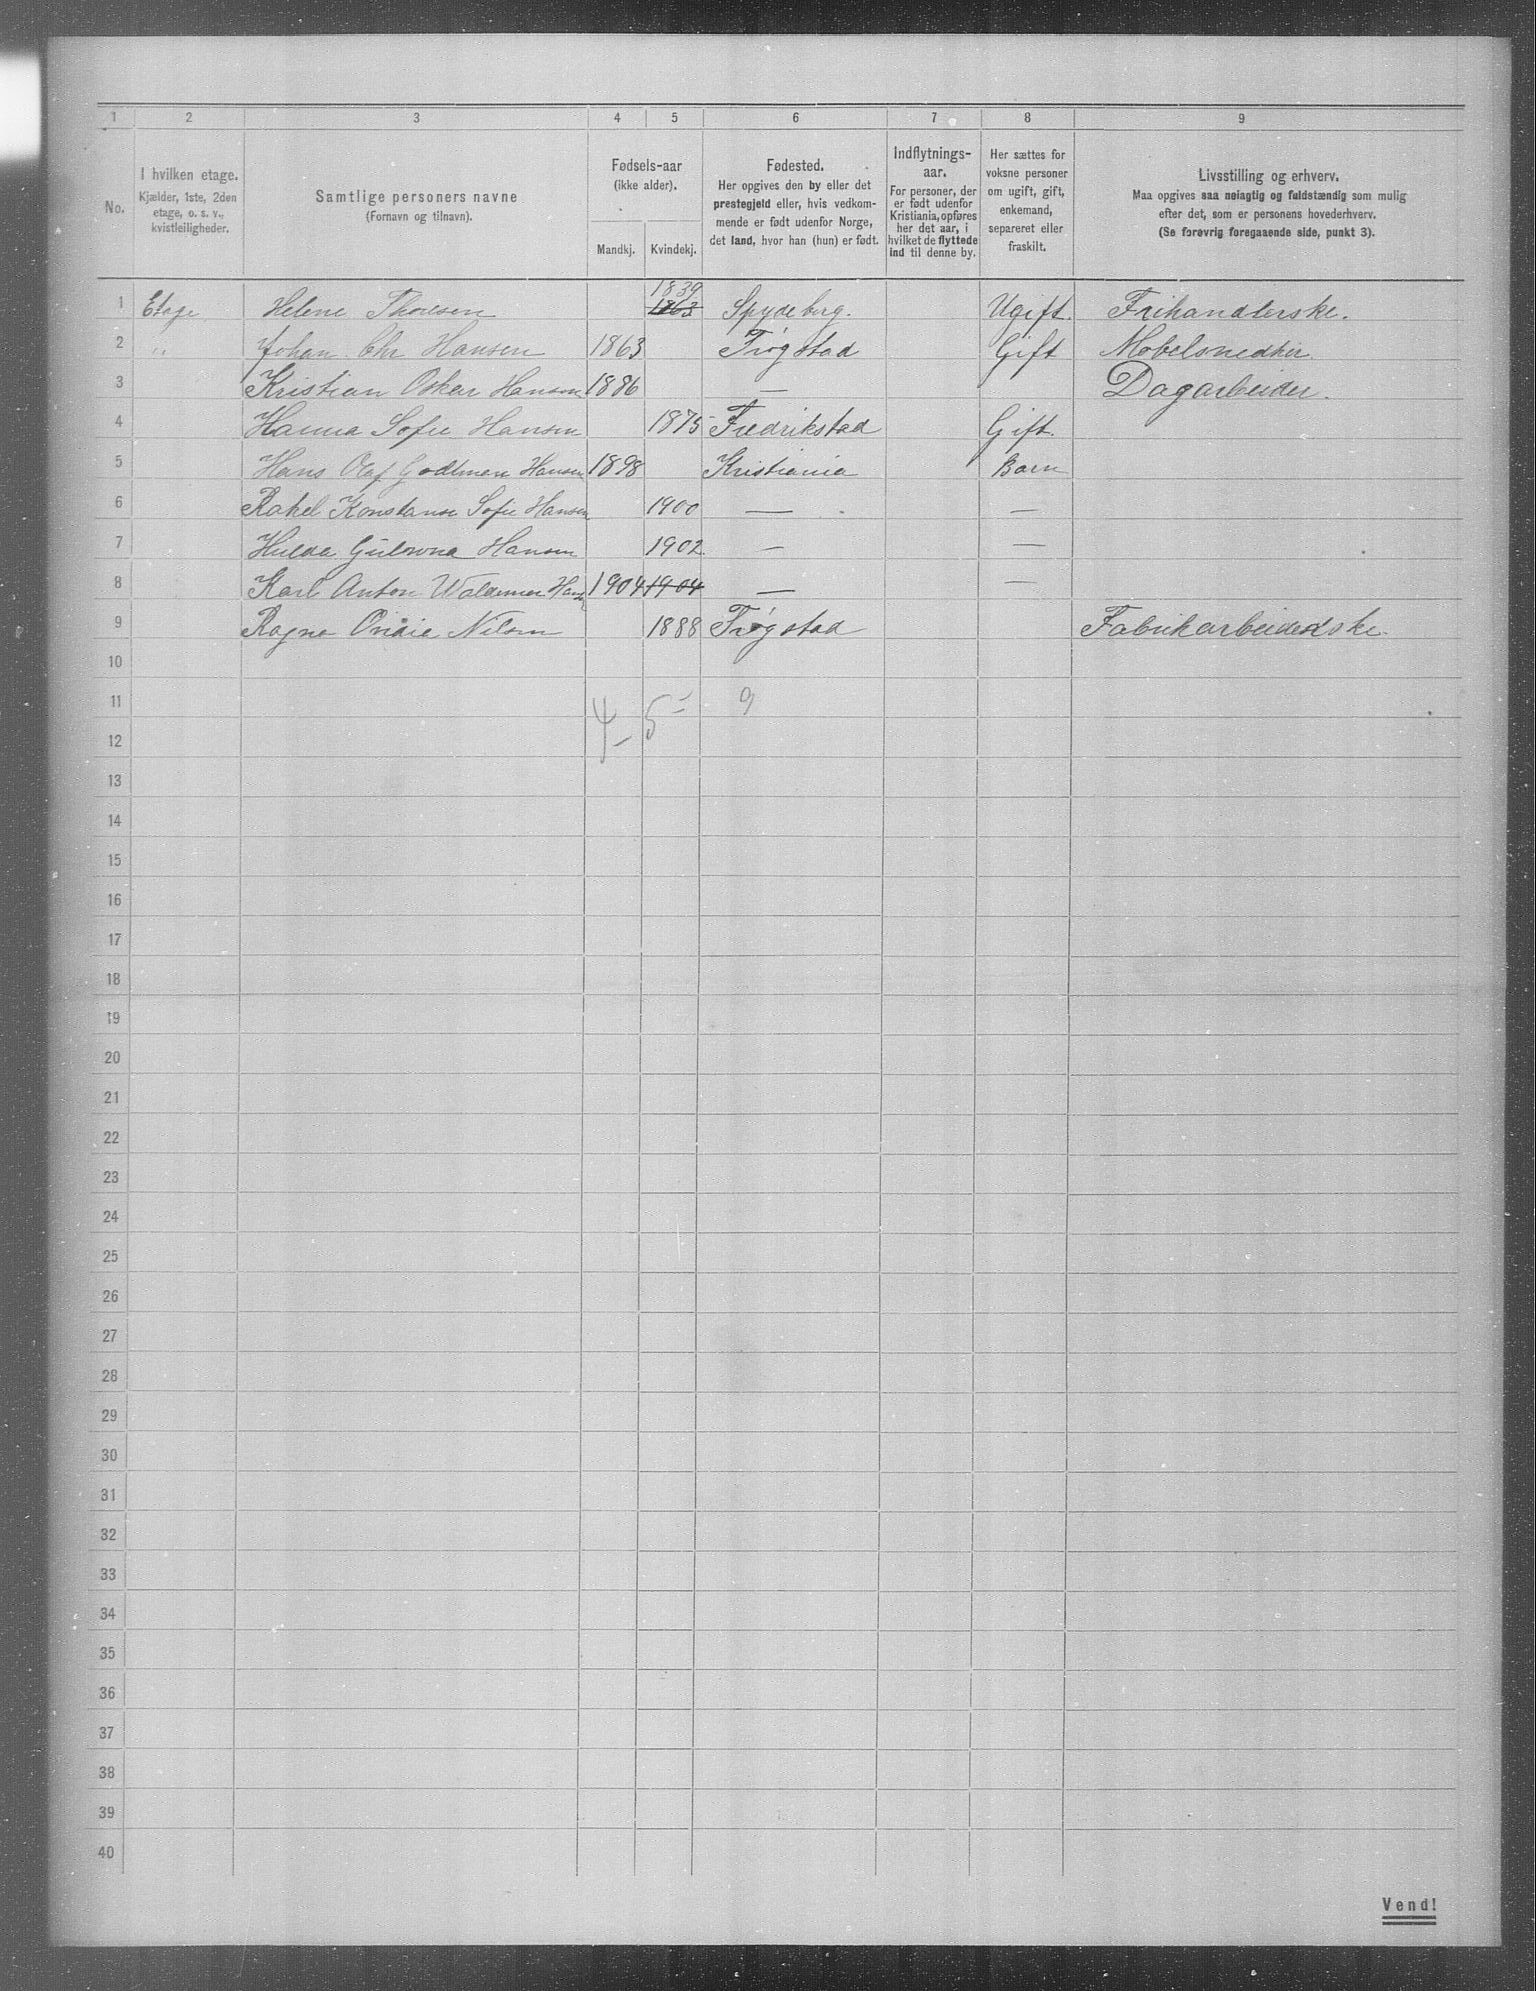 1 2 3 4 5 6 7 8 9
No.
I hvilken etage.
Kjælder, 1ste, 2den
etage, o. s. v.,
kvistleiligheder.
Samtlige personers navne
(Fornavn og tilnavn).
Fødsels-aar
(ikke alder).
Mandkj. Kvindekj.
Fødested.
Her opgives den by eller det
prestegjeld eller, hvis vedkom-
mende er født udenfor Norge,
det land, hvor han (hun) er født.
Indflytnings-
aar.
For personer, der
er født udenfor
Kristiania, opføres
her det aar, i
hvilket de flyttede
ind til denne by.
Her sættes for
voksne personer
om ugift, gift,
enkemand,
separeret eller
fraskilt.
Livsstilling og erhverv.
Maa opgives saa nøiagtig og fuldstændig som mulig
efter det, som er personens hovederhverv.
(Se forøvrig foregaaende side, punkt 3).
1839
1 Etage Helene Thoresen 1863 Spydeberg. Ugift. Frihandlerske.
2 " Johan Chr Hansen 1863 Trøgstad Gift Møbelsnedker
3 Kristian Oskar Hansen 1886 — Dagarbeider.
4 Hanna Sofie Hansen 1875 Fredrikstad Gift.
5 Hans Olaf Godtman Hansen 1898 Kristiania Barn
6 Rakel Konstanse Sofie Hansen 1900 — —
7 Hulda Hansen 1902 — —
8 Karl Anton Waldemar Hansen 1904 1904 — —
9 Ragna Nilsen 1888 Trøgstad Fabrikarbeiderske
10
11 4 - 5 - 9
12
13
14
15
16
17
18
19
20
21
22
23
24
25
26
27
28
29
30
31
32
33
34
35
36
37
38
39
40
Vend!